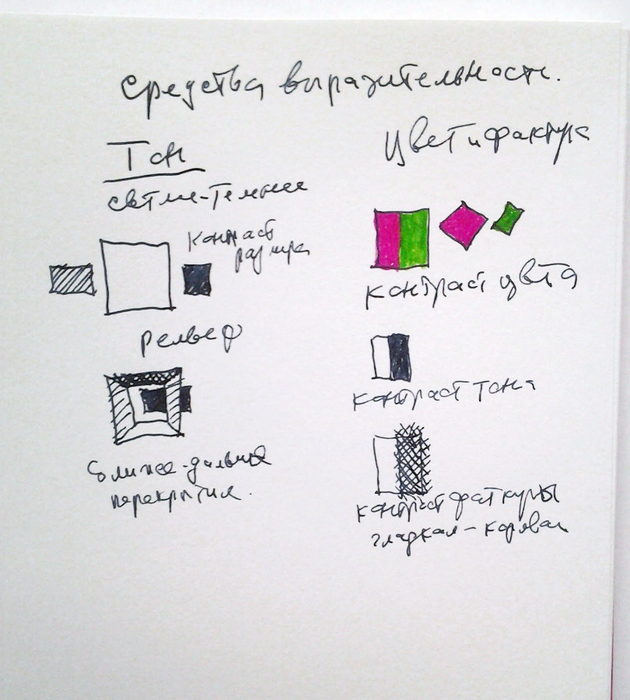 средства выразительности.
Тон
светлее-темнее
контраст
размера
рельеф
ближе-дальше
перекрытие.
Цвет и фактура
контраст цвета
контраст тона
контраст фактуры
гладкая - корявая